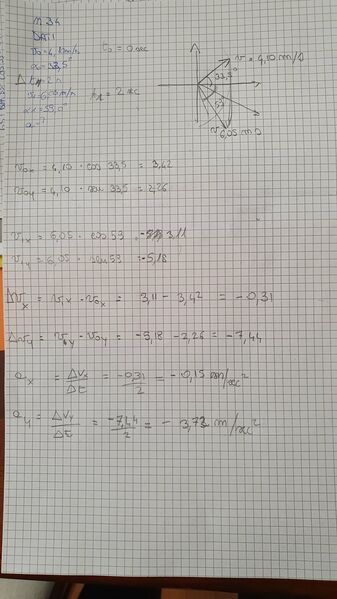 N 34
DATI
v0 = 4,10 m/s t0 = 0 sec
α = 33,5°
Δt = 2 s t1 = 2 sec
v1 = 6,05 m/s
α1 = 53,0°
a = ?
v = 4,10 m/s
33,5°
53
6,05 m/s
v0x = 4,10 · cos 33,5 = 3,42
v0y = 4,10 · sen 33,5 = 2,26
v1x = 6,05 · cos 53 = 3,11
v1y = 6,05 · sen 53 = -5,18
Δvx = vx - v0x = 3,11 - 3,42 = -0,31
Δvy = vy - v0y = -5,18 - 2,26 = -7,44
ax = Δvx/Δt = -0,31/2 = -0,15 m/sec²
ay = Δvy/Δt = -7,44/2 = - 3,72 m/sec²